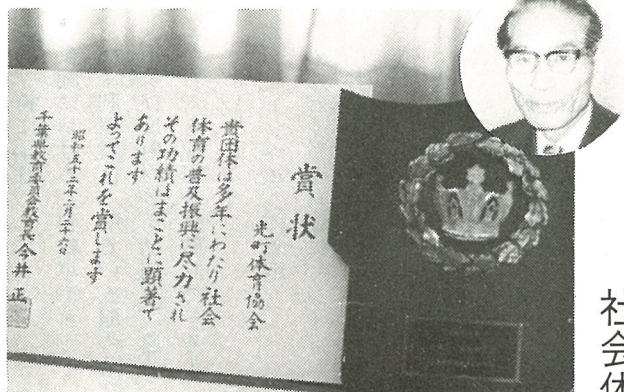 賞状
光町体育協会
貴団体は多年にわたり社会
体育の普及振興に尽力され
その功績はまことに顕著で
あります
よってこれを賞します
昭和五十二年二月二十六日
千葉県教育委員会教育長 今井 正
社会体